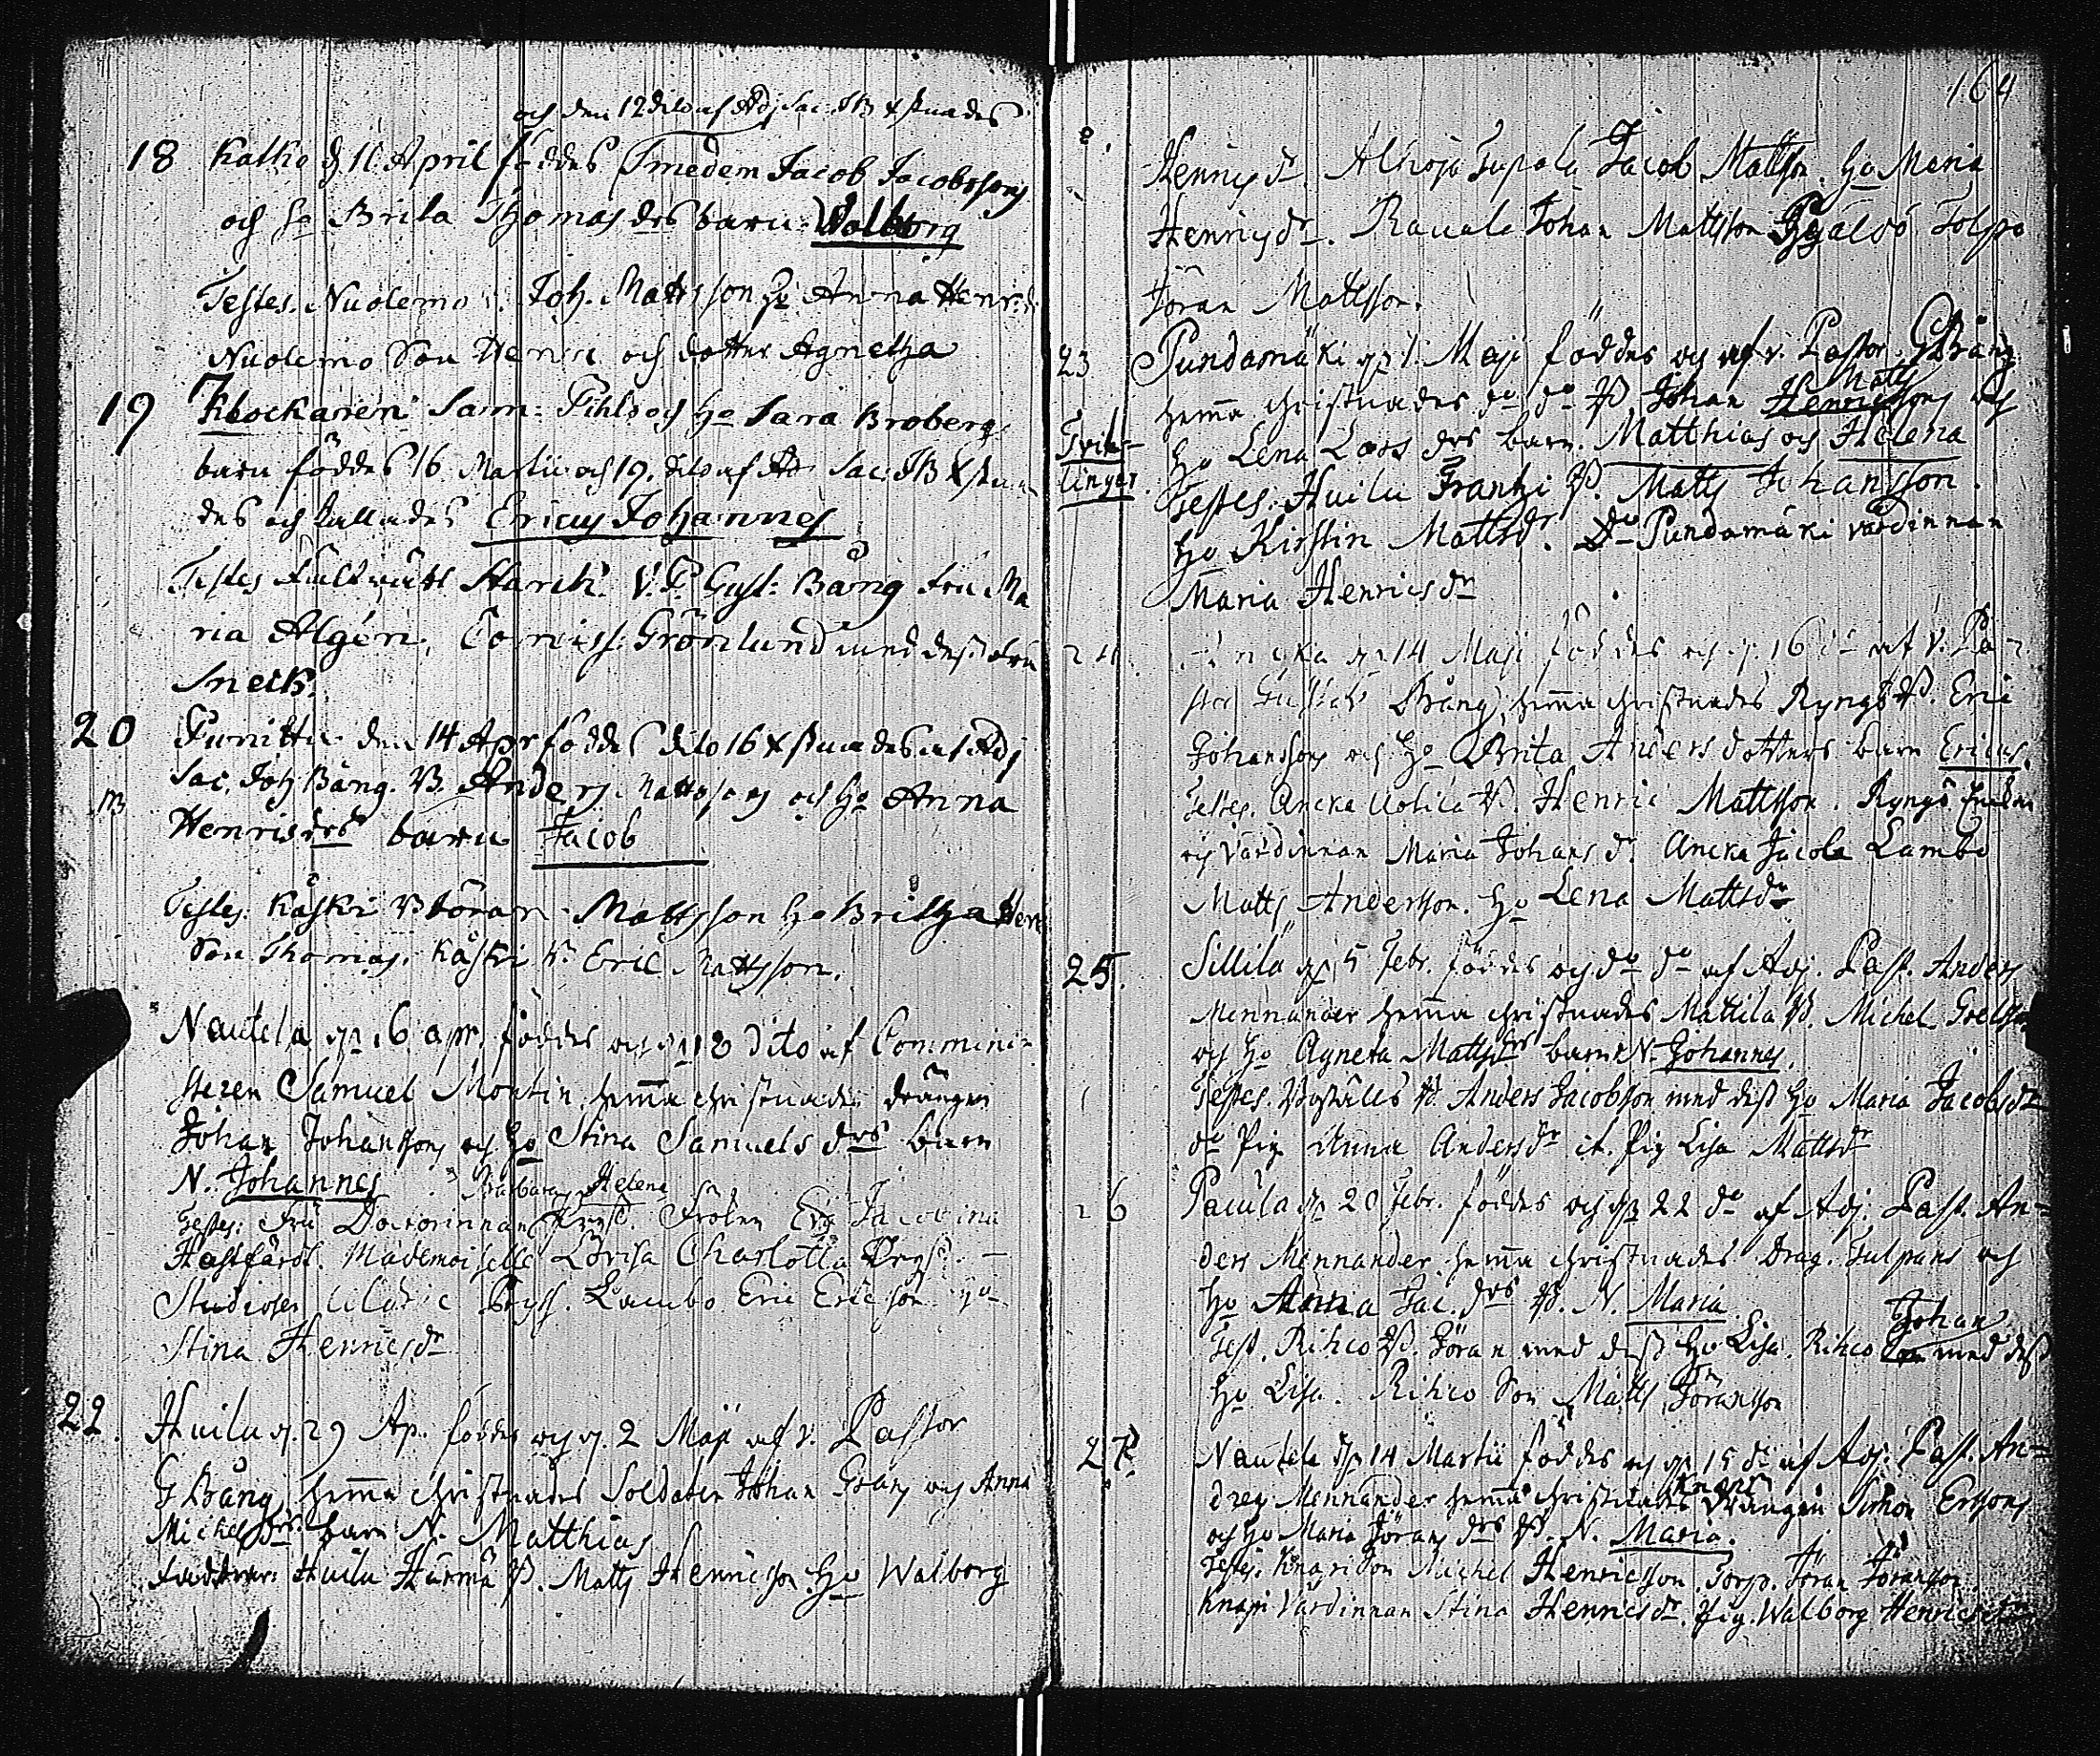 och den 12 dito af Adj Sac. JB Xstnades
18 Katko d 11 April föddes Smeden Jacob Jacobssons
och ho Brita Thomas drs barn. Walborg
Testes. Nuolemo Joh. Mattsson ho Anna Henr. dr
Nuolemo Son Henric och dotter Agnetha
19 Klockaren Sam: Pihls och ho Sara Broberg
barn föddes 16. Martii och 19. dito af Adj Sac. JB Xstna
des och kallades Ericus Johannes
Testes Starck. V. P. Gust: Bång fru Ma
ria Algen. Comiss: Grönlund med dess fru
Sneck.
20 den 14 Apr föddes dito 16 Xstnades af Adj
Sac. Joh Bång. B. Anders Mattssons och ho Anna
Henricsdrs barn Jacob
Testes. Kåski B Göran Mattsson ho Britha Henr
Son Thomas. Kåski B. Eric Mattsson.
Nautela dn 16 apr. föddes och dn 18 dito af Commini-
steren Samuel Montin hemma christnades drängen
Johan Johanssons och ho Stina Samuels drs barn
N. Johannes Barbara Helena
Testes: Fru Doctorinnan Fröken Jacobina
Hästfärdt. Mademoiselle Lovisa Charlotta
Studiosen Lambo Eric Ericsson ho
Stina Henricsdr
22. Huilu d. 29 Ap. föddes och d. 2 Maji af v. Pastor
G Bång, hemma christnades Soldaten Johan Grans och Anna
Michelsdrs barn N. Matthias
Faddrar. Huilu Härmä B. Matts Henricsson ho Walborg
164
Henrics dr. Alhoja Jacob Mattsson. ho Maria
Henrics dr. Rauala Johan Mattsson
Jöran Mattsson.
23 Pundamäki dn 1. Maji föddes och af v. Pastor G Bång
Matts
hemma christnades do do B Johan Henricssons och
Tvil- ho Lena Lars drs barn. Matthias och Helena
lingar. Testes: Huilu Frantzi B. Matts Johansson.
ho Kirstin Mattsdr. Do Pundamäki värdinnan
Maria Henricsdr
24 dn 14 Maji föddes och d. 16 do af v. Pa-
stor Gustaf Bång, hemma christnades Ryngö B. Eric
Johanssons och ho Brita Anders dotters barn Ericus.
Testes. Ancka Uotila B. Henric Mattsson. Ryngö
och värdinnan Maria Johans dr. Ancka Jacola Lambo
Matts Andersson. ho Lena Mattsdr
25. Sillilä dn 5 Febr. föddes och do do af Adj. Past. Anders
Mennander hemma christnades Mattila B. Michel
och ho Agneta Mattsdrs barn N. Johannes.
Testes. B. Anders Jacobsson med dess ho Maria Jacobsdr
do Pig Anna Andersdr it. Pig Lisa Mattsdr
26 Pacula dn 20 Febr. föddes och dn 22 do af Adj. Past. An-
ders Mennander hemma christnades Drag. Tulpans och
ho Anna Jac. drs B. N. Maria
Johan
Test. Rihco B. Jöran med dess ho Lisa. Rihco med dess
ho Lisa. Rihco Son Matts Jöransson
27. Nautela dn 14 Martii föddes och dn 15 do af Adj. Past. An-
Knapi
dreas Mennander hemma christnades Drängen Simon Ersons
och ho Maria Jörans drs B. N. Maria.
Testes. Knapi Son Michel Henricsson. Torp. Jöran Jöransson.
Knapi Värdinnan Stina Henricsdr. Pig. Walborg Henricsdr